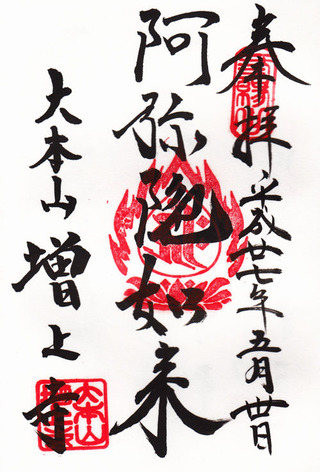 奉拝 平成廿七年五月卅日
阿弥陀如来
大本山 増上寺
大本山